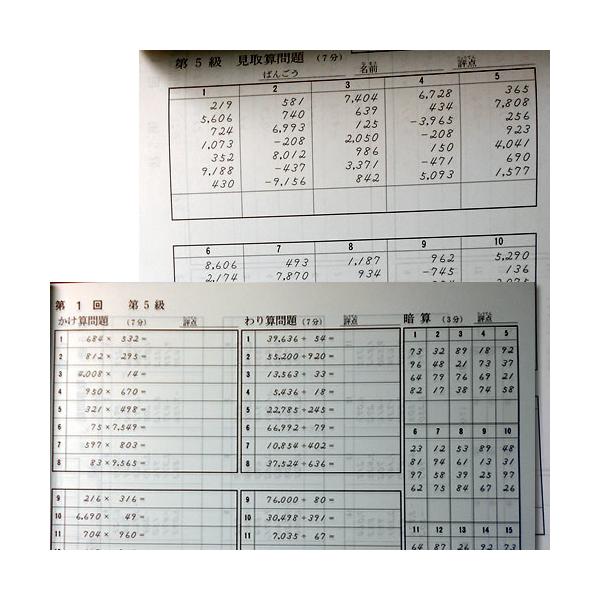 第5級 見取算問題 (7分)
ばんごう 名前 評点
1 2 3 4 5
219 581 7,404 6,728 365
5,606 740 639 434 7,808
724 6,993 125 -3,965 256
1,073 -208 2,050 -208 923
352 8,012 986 150 4,041
9,188 -437 3,371 -471 690
430 -9,156 842 5,093 1,577
6 7 8 9 10
8,606 493 1,187 962 5,290
2,174 7,870 934 -745 136
第1回 第5級
かけ算問題 (7分) 評点 わり算問題 (7分) 評点 暗算 (3分) 評点
1 684 × 532 =
2 812 × 295 =
3 4,008 × 14 =
4 950 × 670 =
5 321 × 498 =
6 75 × 7,549 =
7 597 × 803 =
8 83 × 9,565 =
9 216 × 316 =
10 6,690 × 49 =
11 704 × 960 =
1 39,636 ÷ 54 =
2 55,200 ÷ 920 =
3 13,563 ÷ 33 =
4 5,436 ÷ 18 =
5 22,785 ÷ 245 =
6 66,992 ÷ 79 =
7 10,854 ÷ 402 =
8 37,524 ÷ 636 =
9 76,000 ÷ 80 =
10 30,498 ÷ 391 =
11 7,035 ÷ 67 =
1 2 3 4 5
73 32 89 18 92
96 48 21 73 37
64 79 76 69 21
82 17 38 74 58
6 7 8 9 10
23 12 53 89 48
81 94 61 13 31
97 58 39 25 97
62 75 84 67 26
11 12 13 14 15
64 87 26 92 73